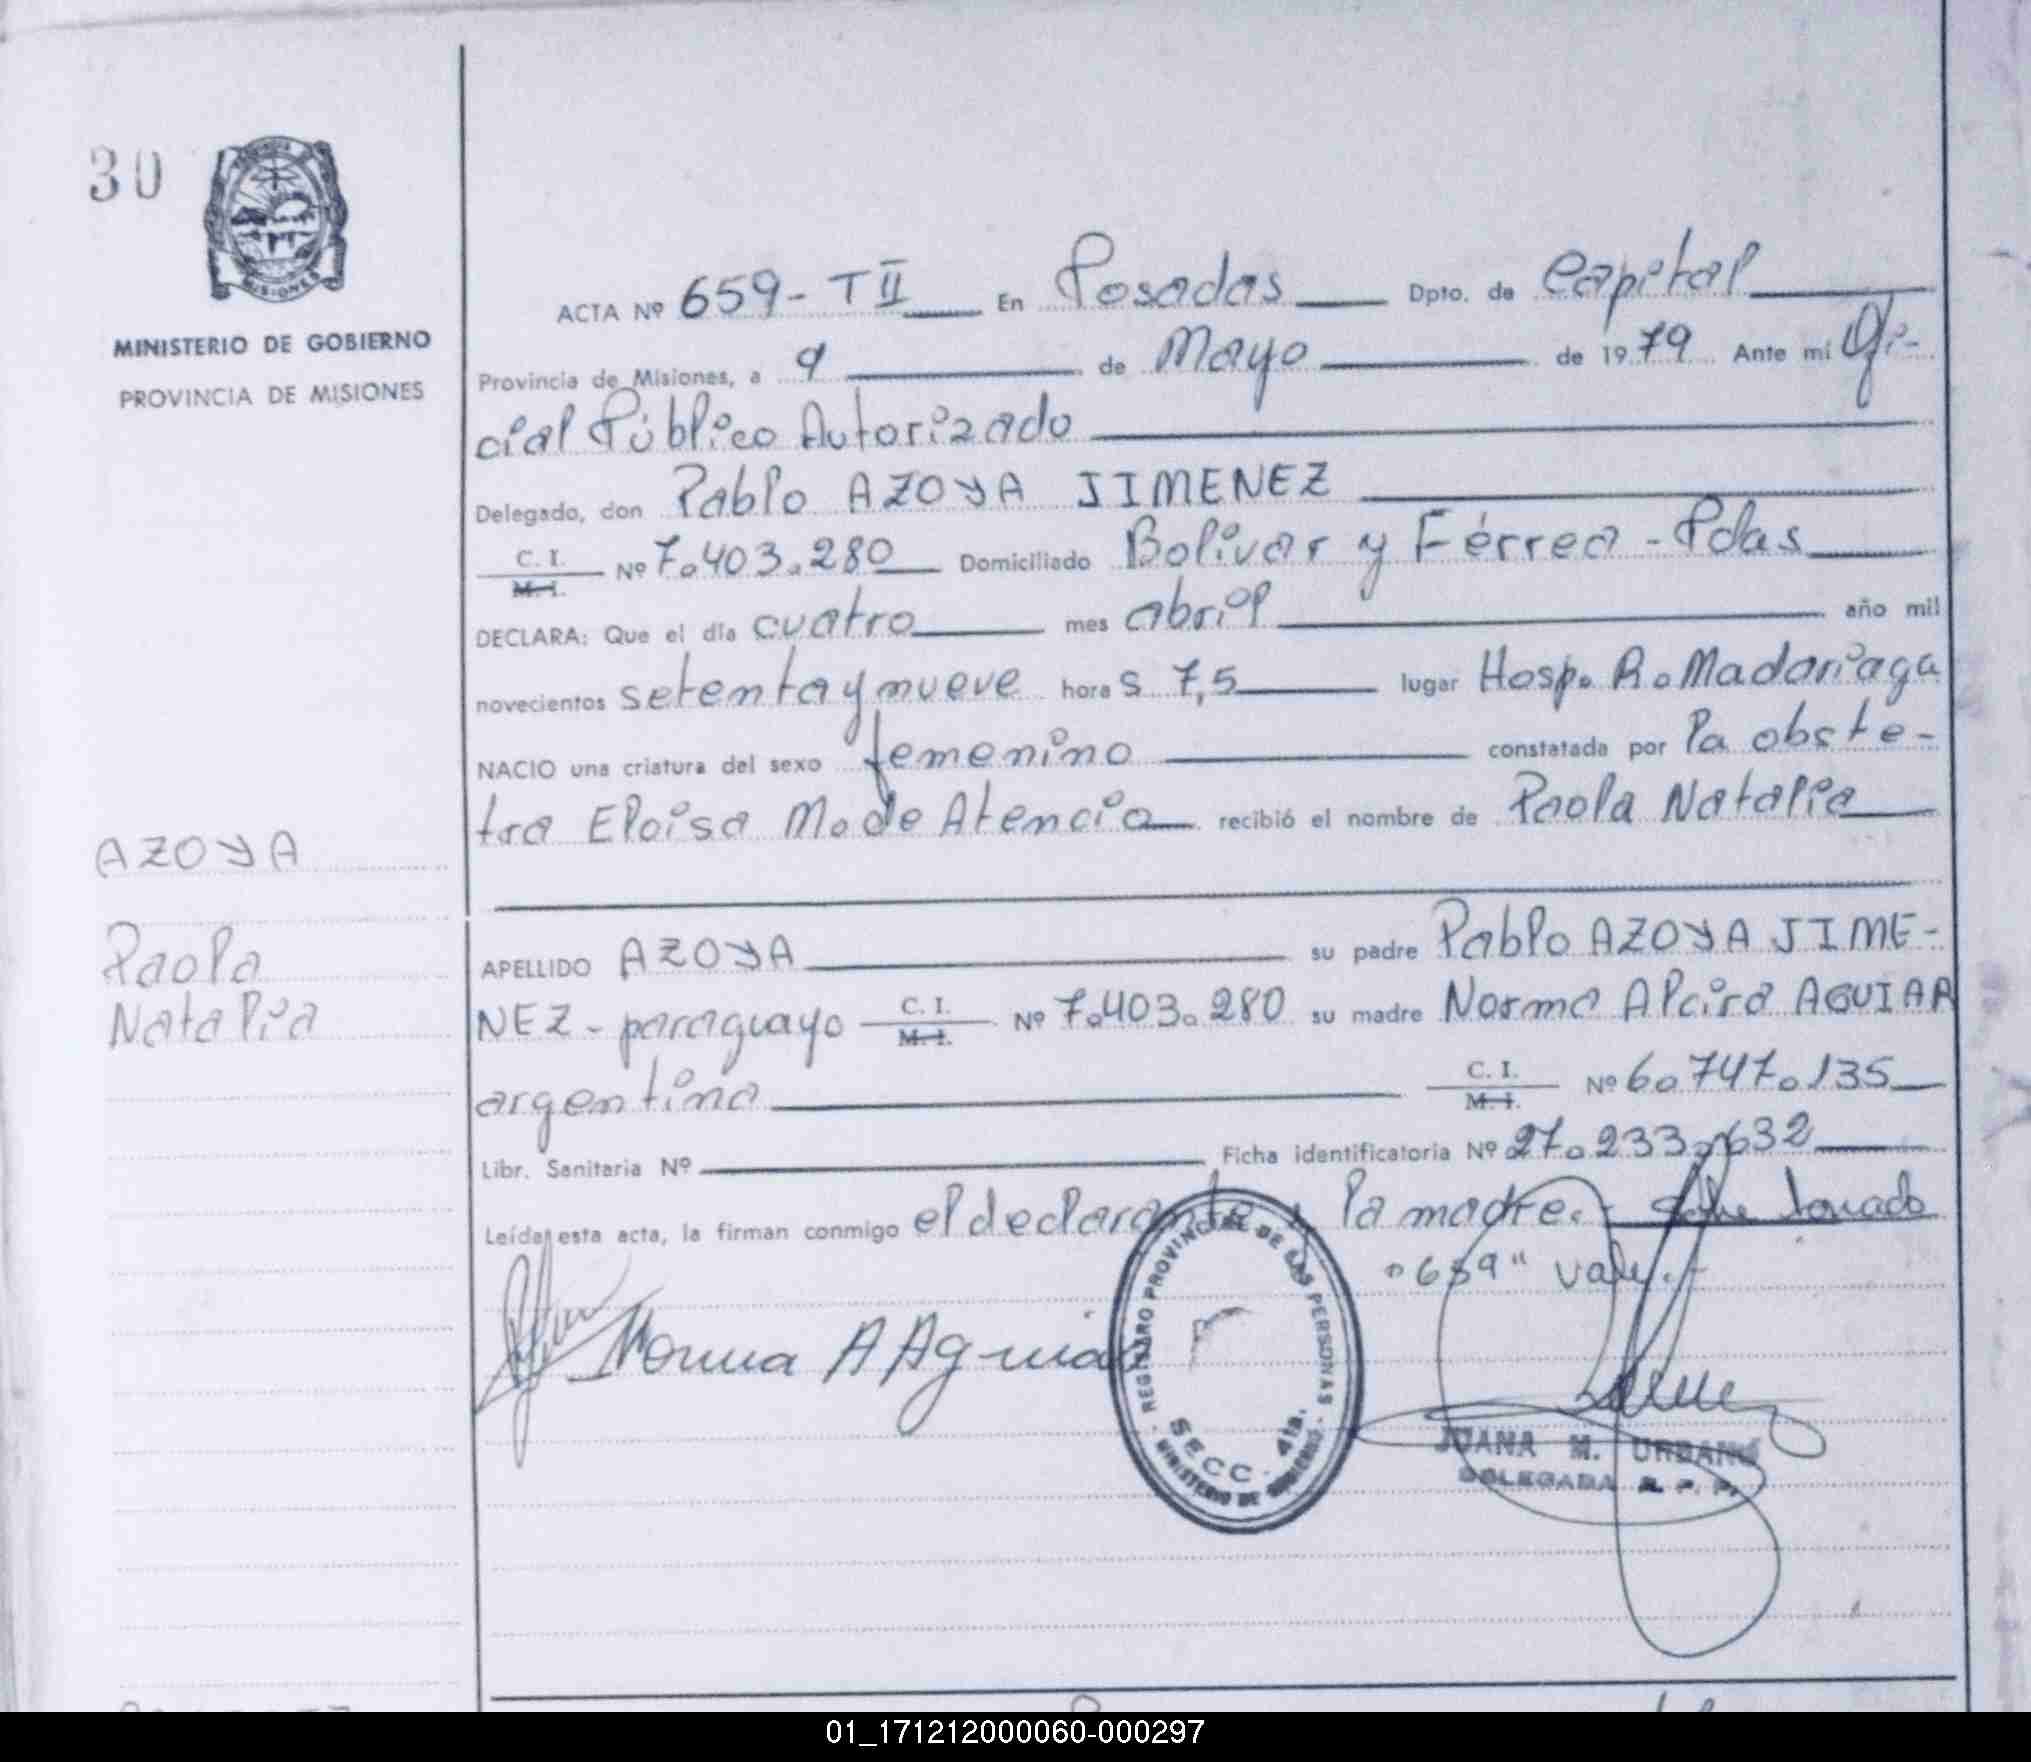 30
MISIONES
MINISTERIO DE GOBIERNO
PROVINCIA DE MISIONES
ACTA Nº 659- T II En Posadas Dpto. de Capital
Provincia de Misiones, a 9 de Mayo de 1979 Ante mi Ofi-
cial Público Autorizado
Delegado, don Pablo AZOYA JIMENEZ
C. I.
M. I. Nº 7.403.280 Domiciliado Bolívar y Férrea - Pdas
DECLARA: Que el día cuatro mes abril año mil
novecientos setenta y nueve hora s 7,5 lugar Hosp. R. Madariaga
NACIO una criatura del sexo femenino constatada por la obsté-
tra Eloisa M. de Atencio recibió el nombre de Paola Natalia
AZOYA
Paola
Natalia
APELLIDO AZOYA su padre Pablo AZOYA JIME-
NEZ - paraguayo C. I. M. I. Nº 7.403.280 su madre Norma Alcira AGUIAR
argentina C. I. M. I. Nº 6.747.135
Libr. Sanitaria Nº Ficha identificatoria Nº 27.233.632
Leída esta acta, la firman conmigo el declarante y la madre.-
"659" vale.-
Norma A Aguiar
REGISTRO PROVINCIAL DE LAS PERSONAS
SECC. 4ta.
MINISTERIO DE GOBIERNO
JUANA M. URBANO
DELEGADA R. P. P.
01_171212000060-000297